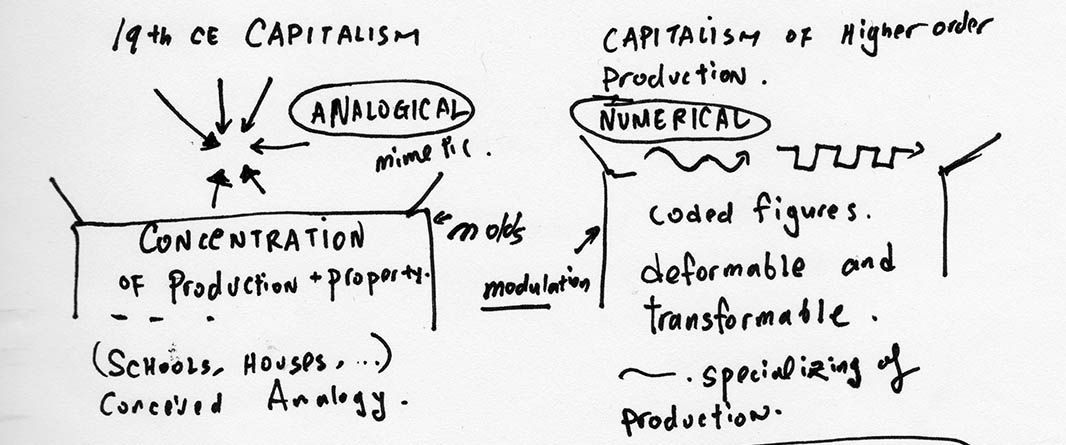 19th CE CAPITALISM
ANALOGICAL
mimetic.
CONCENTRATION
OF Production + property.
molds
(SCHOOLS, HOUSES, ...)
Conceived Analogy.
CAPITALISM OF Higher order
Production.
NUMERICAL
coded figures.
modulation
deformable and
transformable.
specializing of
production.